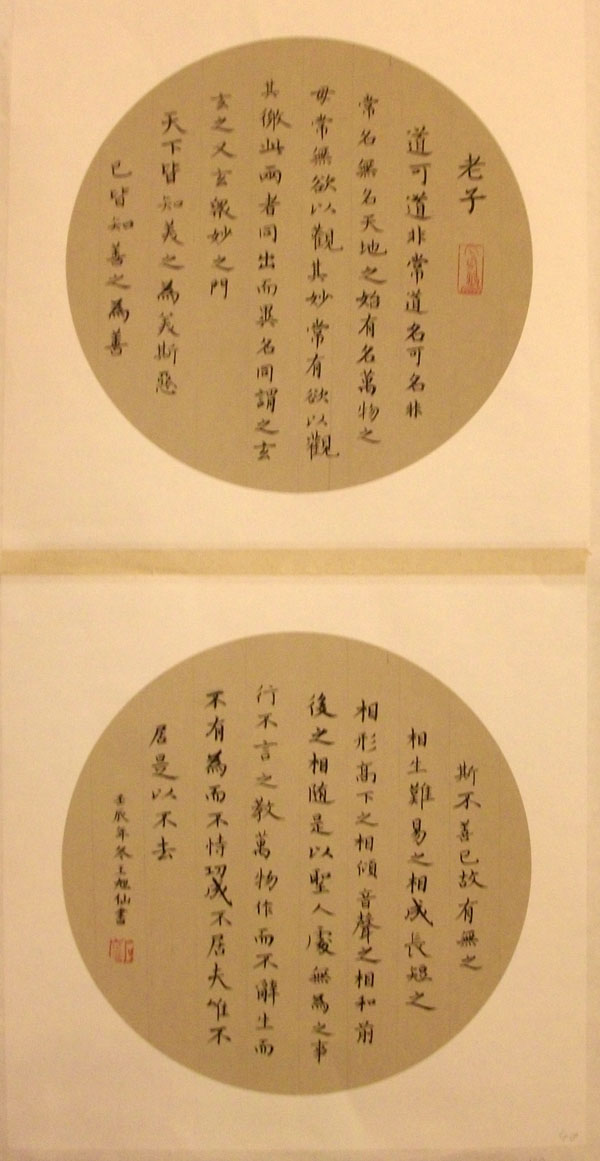 老子
道可道非常道名可名非
常名無名天地之始有名萬物之
母常無欲以觀其妙常有欲以觀
其徼此兩者同出而異名同謂之玄
玄之又玄衆妙之門
天下皆知美之為美斯惡
已皆知善之為善
斯不善已故有無之
相生難易之相成長短之
相形高下之相傾音聲之相和前
後之相隨是以聖人處無為之事
行不言之教萬物作而不辭生而
不有為而不恃功成不居夫唯不
居是以不去
壬辰年冬王旭仙書